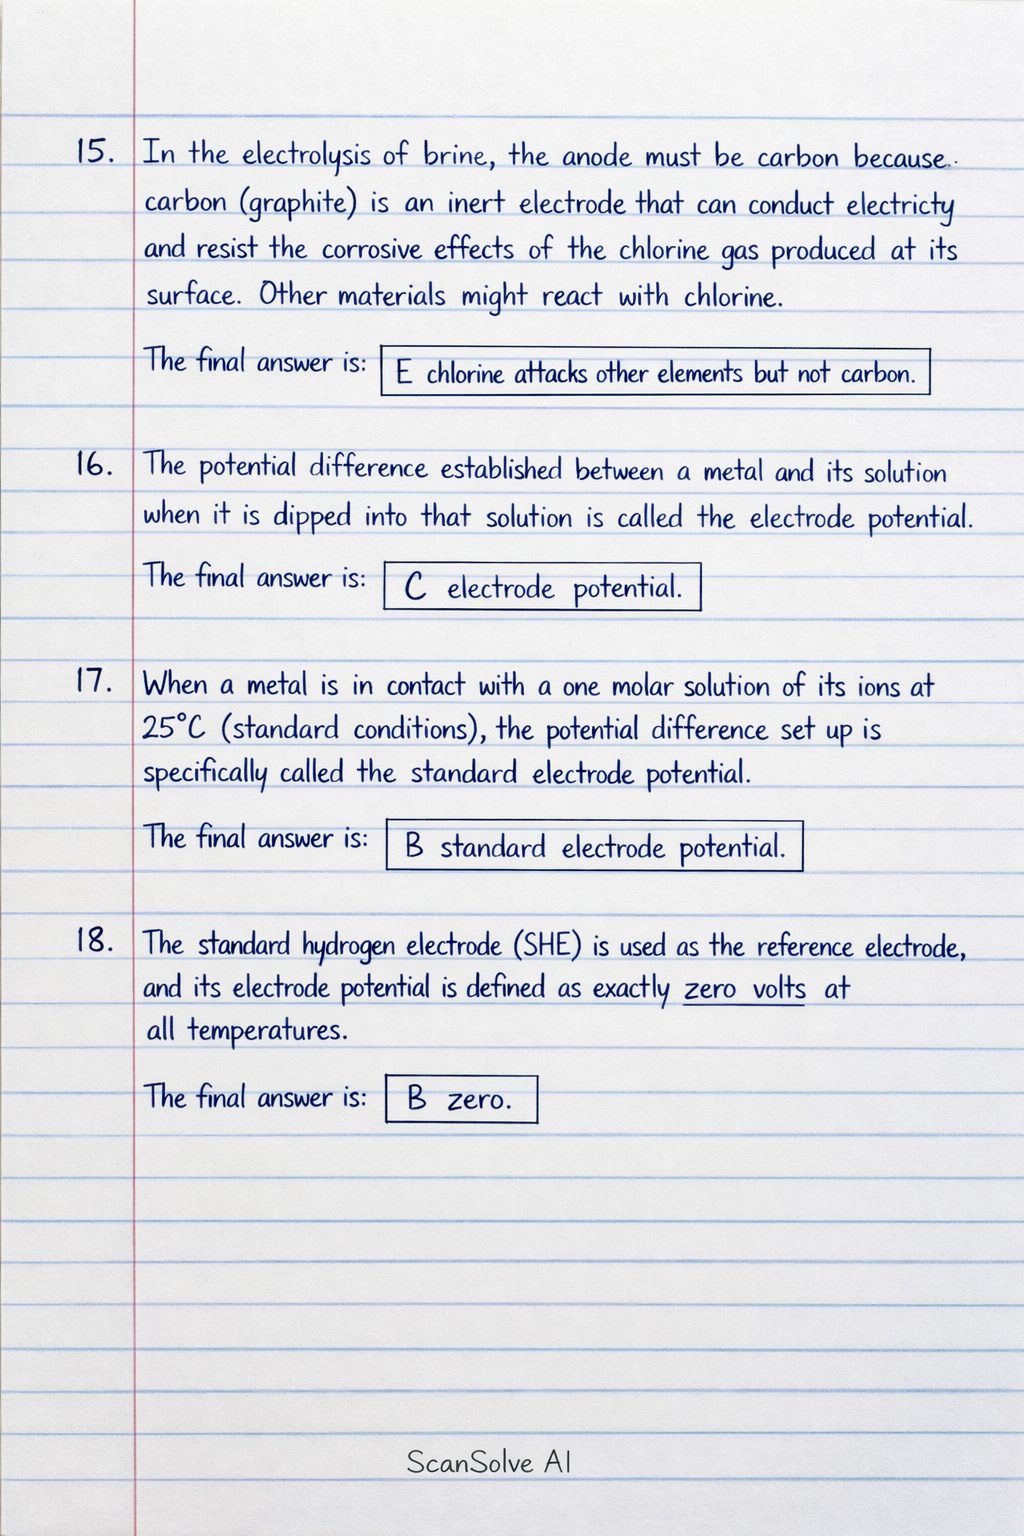 15. In the electrolysis of brine, the anode must be carbon because..
carbon (graphite) is an inert electrode that can conduct electricty
and resist the corrosive effects of the chlorine gas produced at its
surface. Other materials might react with chlorine.
The final answer is: E chlorine attacks other elements but not carbon.
16. The potential difference established between a metal and its solution
when it is dipped into that solution is called the electrode potential.
The final answer is: C electrode potential.
17. When a metal is in contact with a one molar solution of its ions at
25°C (standard conditions), the potential difference set up is
specifically called the standard electrode potential.
The final answer is: B standard electrode potential.
18. The standard hydrogen electrode (SHE) is used as the reference electrode,
and its electrode potential is defined as exactly zero volts at
all temperatures.
The final answer is: B zero.
ScanSolve AI